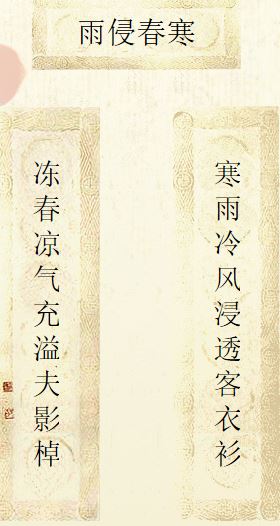 雨侵春寒
寒雨冷风浸透客衣衫
冻春凉气充溢夫影棹